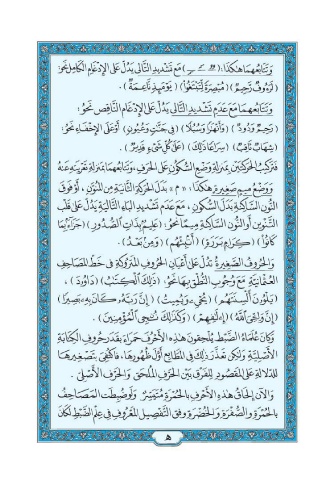 وَتَتَابُعُهُمَا هٰكَذَا: ( ــٌ ــً ــٍ ) مَعَ تَشْدِيدِ التَّالِي يَدُلُّ عَلَى الإِدْغَامِ الْكَامِلِ نَحْوُ:
(لَرَءُوفٌ رَّحِيمٌ) (مُبْصِرَةً لِّتَبْتَغُوا) (يَوْمَئِذٍ نَّاعِمَةٌ).
وَتَتَابُعُهُمَا مَعَ عَدَمِ تَشْدِيدِ التَّالِي يَدُلُّ عَلَى الإِدْغَامِ النَّاقِصِ نَحْوُ:
(رَحِيمٌ وَدُودٌ) (وَأَنْهَٰرًا وَسُبُلًا) (فِي جَنَّٰتٍ وَعُيُونٍ) أَوْ عَلَى الإِخْفَاءِ نَحْوُ:
(شِهَابٌ ثَاقِبٌ) (سِرَاعًا ذَٰلِكَ) (عَلَىٰ كُلِّ شَيْءٍ قَدِيرٌ).
فَتَرْكِيبُ الْحَرَكَتَيْنِ بِمَنْزِلَةِ وَضْعِ السُّكُونِ عَلَى الْحَرْفِ، وَتَتَابُعُهُمَا بِمَنْزِلَةِ تَعْرِيَتِهِ عَنْهُ
وَوَضْعُ مِيمٍ صَغِيرَةٍ هٰكَذَا: « م » بَدَلَ الْحَرَكَةِ الثَّانِيَةِ مِنَ الْمُنَوَّنِ، أَوْ فَوْقَ
النُّونِ السَّاكِنَةِ بَدَلَ السُّكُونِ، مَعَ عَدَمِ تَشْدِيدِ الْبَاءِ التَّالِيَةِ يَدُلُّ عَلَى قَلْبِ
التَّنْوِينِ أَوِ النُّونِ السَّاكِنَةِ مِيمًا نَحْوُ: (عَلِيمٌۢ بِذَاتِ الصُّدُورِ) (جَزَآءًۢ بِمَا
كَانُوا) (كِرَامٍۭ بَرَرَةٍ) (أَنۢبِئْهُم) (وَمِنۢ بَعْدُ).
وَالْحُرُوفُ الصَّغِيرَةُ تَدُلُّ عَلَى أَعْيَانِ الْحُرُوفِ الْمَتْرُوكَةِ فِي خَطِّ الْمَصَاحِفِ
الْعُثْمَانِيَّةِ مَعَ وُجُوبِ النُّطْقِ بِهَا نَحْوُ: (ذَٰلِكَ الْكِتَٰبُ) (دَاوُۥدَ)،
(يَلْوُۥنَ أَلْسِنَتَهُم) (يُحْيِۦ وَيُمِيتُ) (إِنَّ رَبَّهُۥ كَانَ بِهِۦ بَصِيرًا)
(إِنَّ وَلِـِّۧيَ اللَّهُ) (إِۦلَٰفِهِمْ) (وَكَذَٰلِكَ نُـۨجِي الْمُؤْمِنِينَ).
وَكَانَ عُلَمَاءُ الضَّبْطِ يُلْحِقُونَ هَذِهِ الأَحْرُفَ حَمْرَاءَ بِقَدْرِ حُرُوفِ الْكِتَابَةِ
الأَصْلِيَّةِ وَلٰكِنْ تَعَذَّرَ ذَلِكَ فِي الْمَطَابِعِ أَوَّلَ ظُهُورِهَا، فَاكْتُفِيَ بِتَصْغِيرِهَا
لِلدَّلَالَةِ عَلَى الْمَقْصُودِ لِلْفَرْقِ بَيْنَ الْحَرْفِ الْمُلْحَقِ وَالْحَرْفِ الأَصْلِيِّ.
وَالآنَ إِلْحَاقُ هَذِهِ الأَحْرُفِ بِالْحُمْرَةِ مُتَيَسِّرٌ وَلَوْ ضُبِطَتِ الْمَصَاحِفُ
بِالْحُمْرَةِ وَالصُّفْرَةِ وَالْخُضْرَةِ وَفْقَ التَّفْصِيلِ الْمَعْرُوفِ فِي عِلْمِ الضَّبْطِ لَكَانَ
هـ